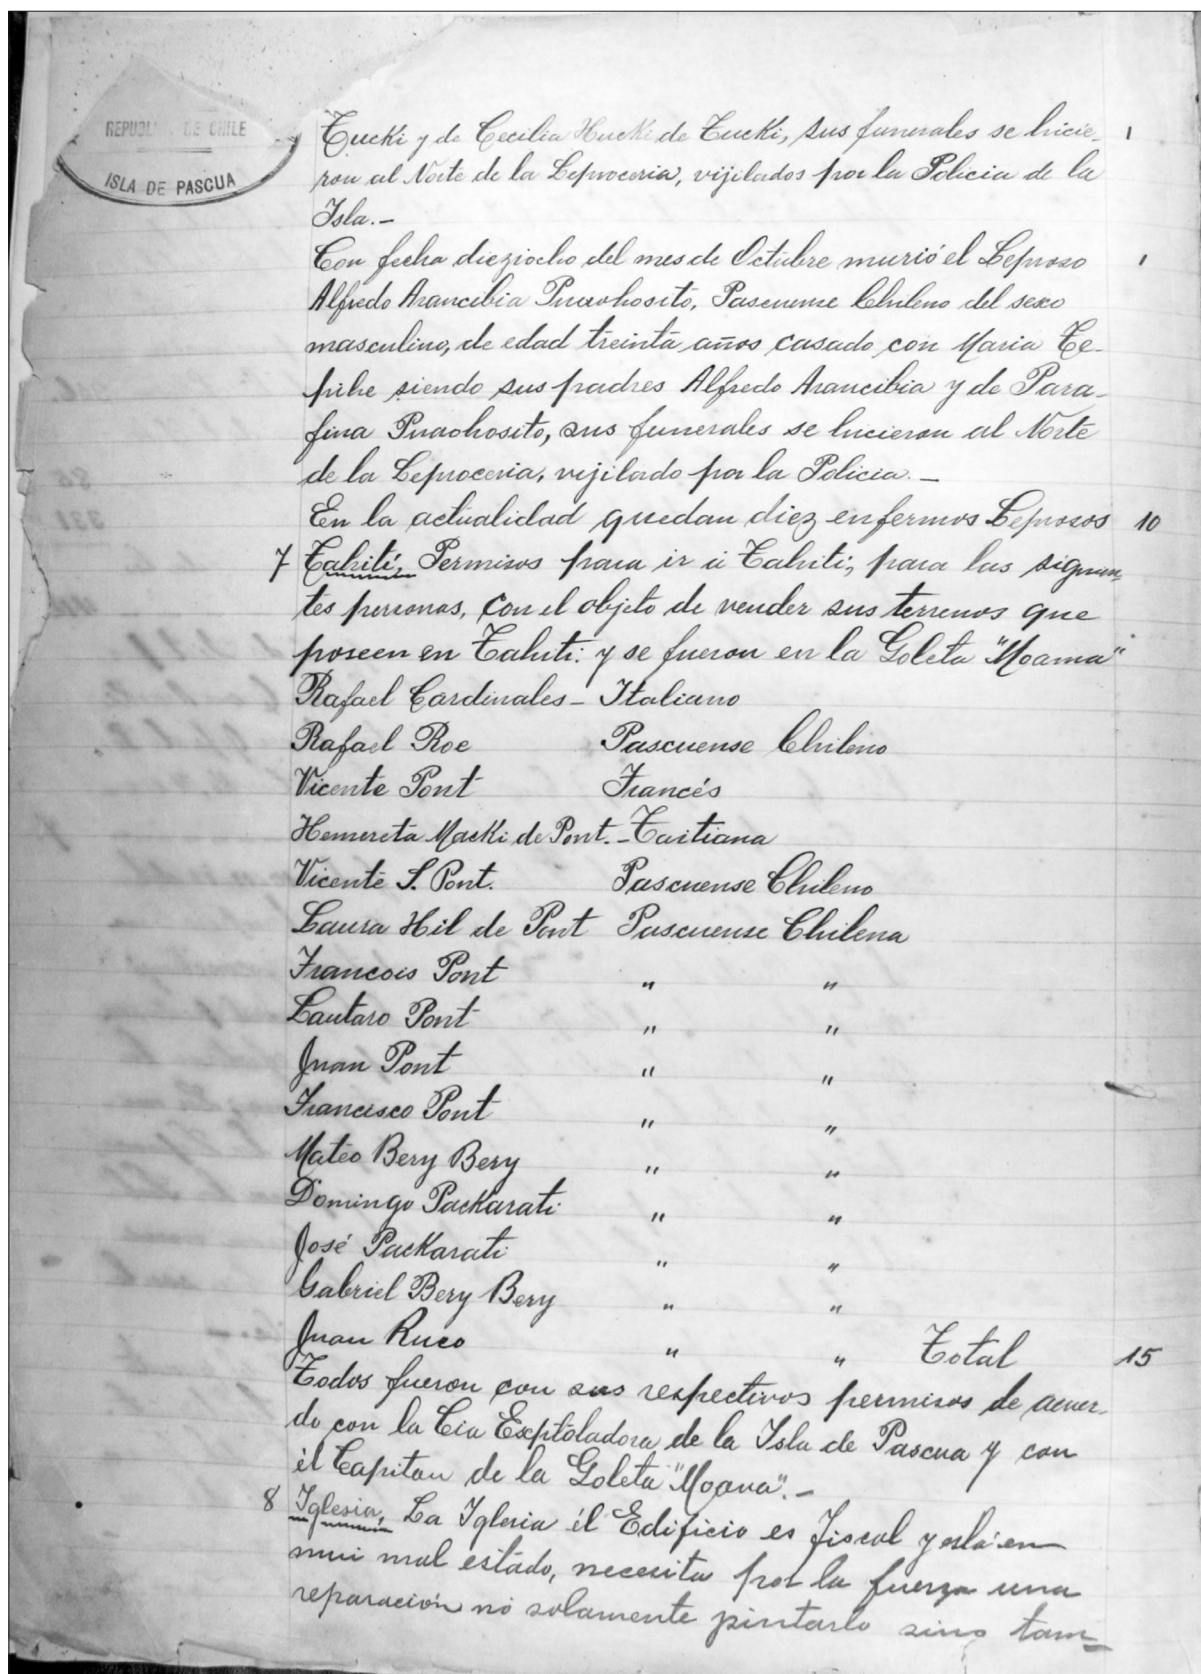 REPUBLICA DE CHILE
ISLA DE PASCUA
Tucki y de Cecilia Hucki de Tucki, sus funerales se hicie- 1
ron al Norte de la Leproceria, vijilados por la Policia de la
Isla.-
Con fecha dieziocho del mes de Octubre murió el Leproso 1
Alfredo Arancibia Puaohosito, Pascuense Chileno del sexo
masculino, de edad treinta años casado con Maria Te-
pihe siendo sus padres Alfredo Arancibia y de Para-
fina Puaohosito, sus funerales se hicieron al Norte
de la Leproceria, vijilado por la Policia.-
En la actualidad quedan diez enfermos Leprosos 10
7 Tahiti, Permisos para ir á Tahiti, para las siguien
tes personas, con el objeto de vender sus terrenos que
poseen en Tahiti: y se fueron en la Goleta "Moama"
Rafael Cardinales - Italiano
Rafael Roe Pascuense Chileno
Vicente Pont Francés
Hemereta Macki de Pont.- Taitiana
Vicente S. Pont. Pascuense Chileno
Laura Hil de Pont Pascuense Chilena
Francois Pont " "
Lautaro Pont " "
Juan Pont " "
Francisco Pont " "
Matéo Bery Bery " "
Domingo Packarati " "
José Packarati " "
Gabriel Bery Bery " "
Juan Ruco " " Total 15
Todos fueron con sus respectivos permisos de acuer-
do con la Cia Exptoladora de la Isla de Pascua y con
él Capitan de la Goleta "Moana".-
8 Iglesia, La Iglesia él Edificio es fiscal y está en
mui mal estado, necesita por la fuerza una
reparación nó solamente pintarlo sino tam-